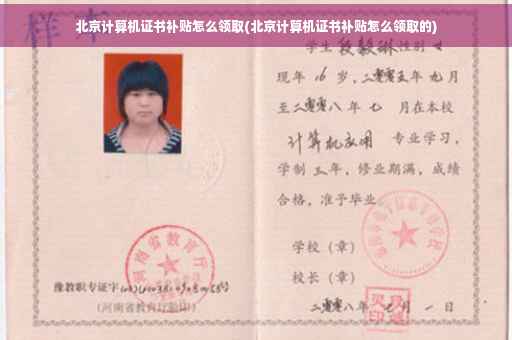 北京计算机证书补贴怎么领取(北京计算机证书补贴怎么领取的)
样本
学生段毅琳性别女
现年16岁，二零零五年九月
至二零零八年七月在本校
计算机应用 专业学习，
学制三年，修业期满，成绩
合格，准予毕业
学校（章）
校长（章）
二零零八年七月一日
河南省教育厅
豫教职专证字
（河南省教育厅验印）